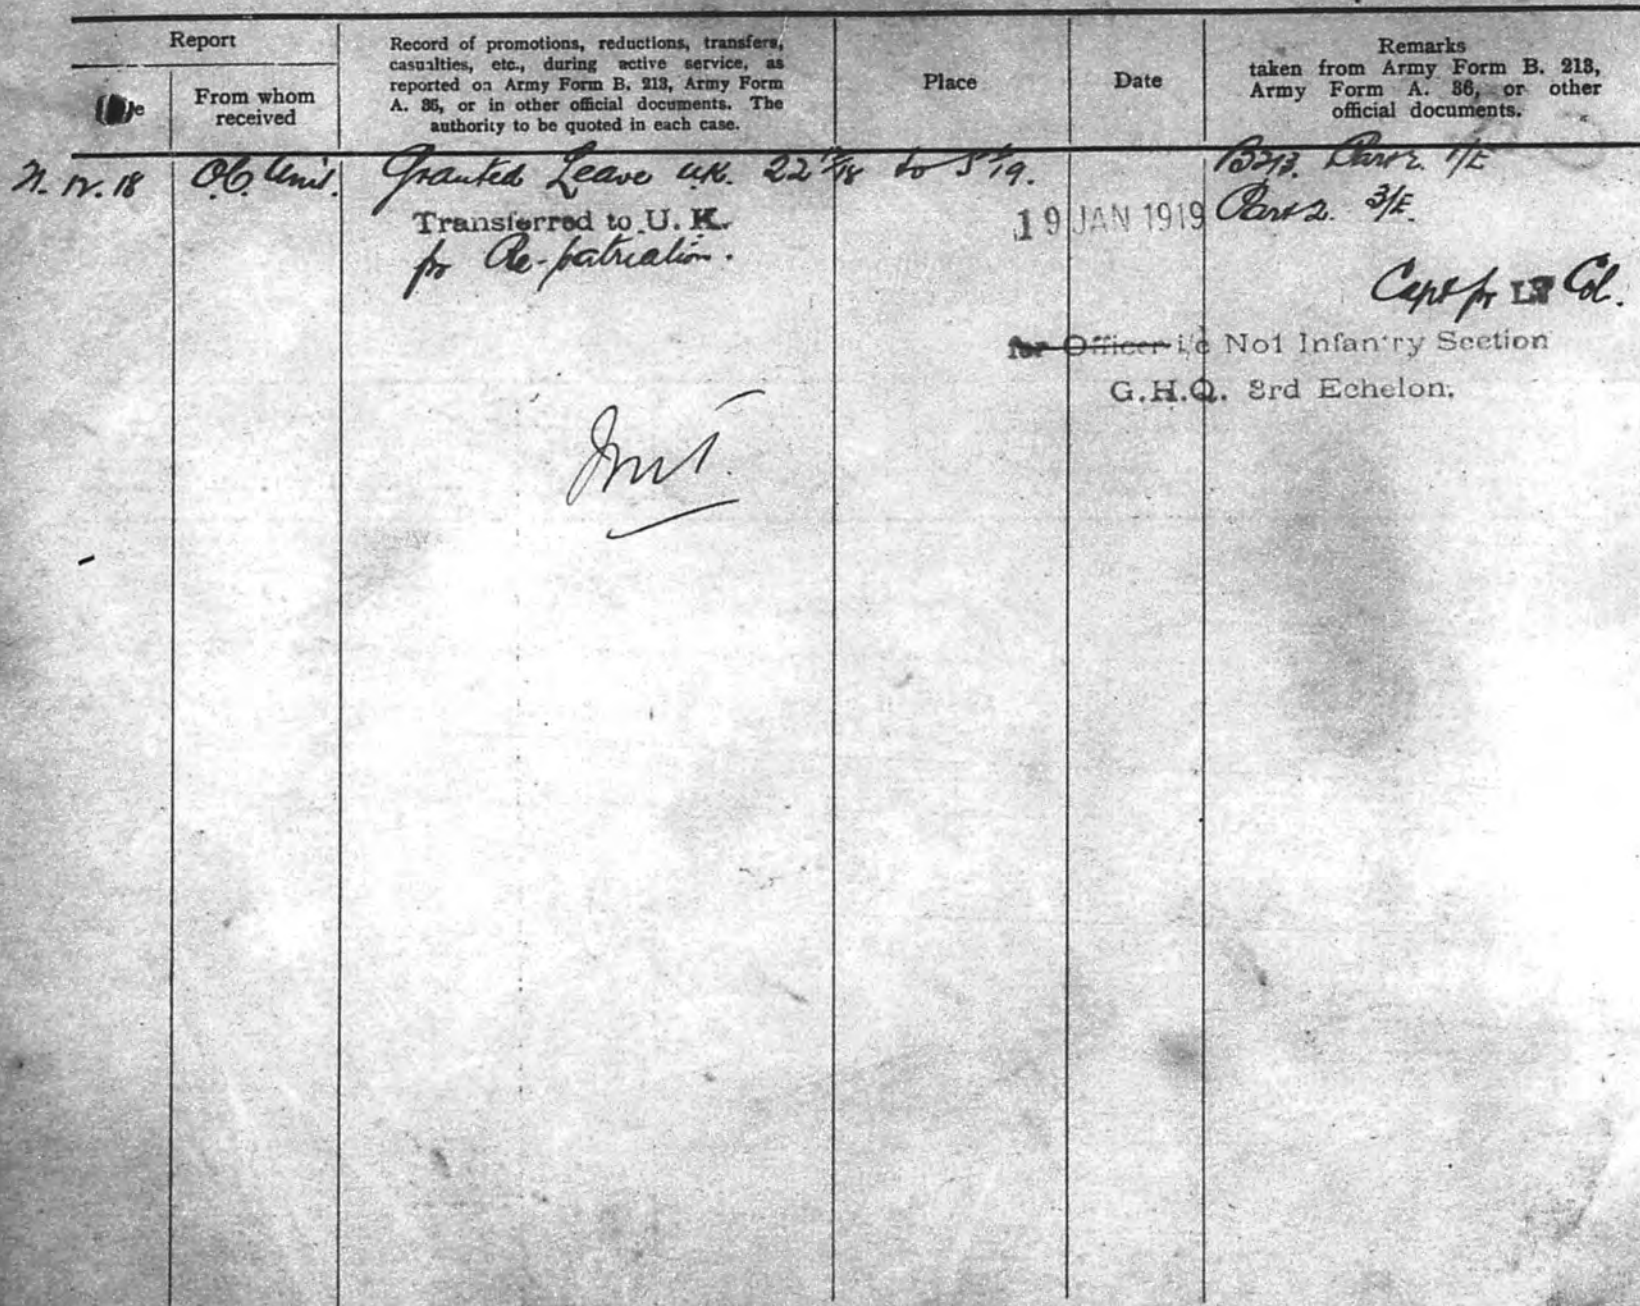 Report
From whom
received
Record of promotions, reductions, transfers,
casualties, etc., during active service, as
reported on Army Form B. 213, Army Form
A. 36, or in other official documents. The
authority to be quoted in each case.
Place
Date
Remarks
taken from Army Form B. 213,
Army Form A. 36, or other
official documents.
12. 18 O.C. Unit. Granted Leave U.K. 22 12/18 to 5 1/19. B213. Part 2. 1/E
Transferred to U. K. 19 JAN 1919 Part 2. 3/E.
for Re-patriation.
Capt for LT Col.
for Officer i/c No1 Infantry Section
G.H.Q. 3rd Echelon.